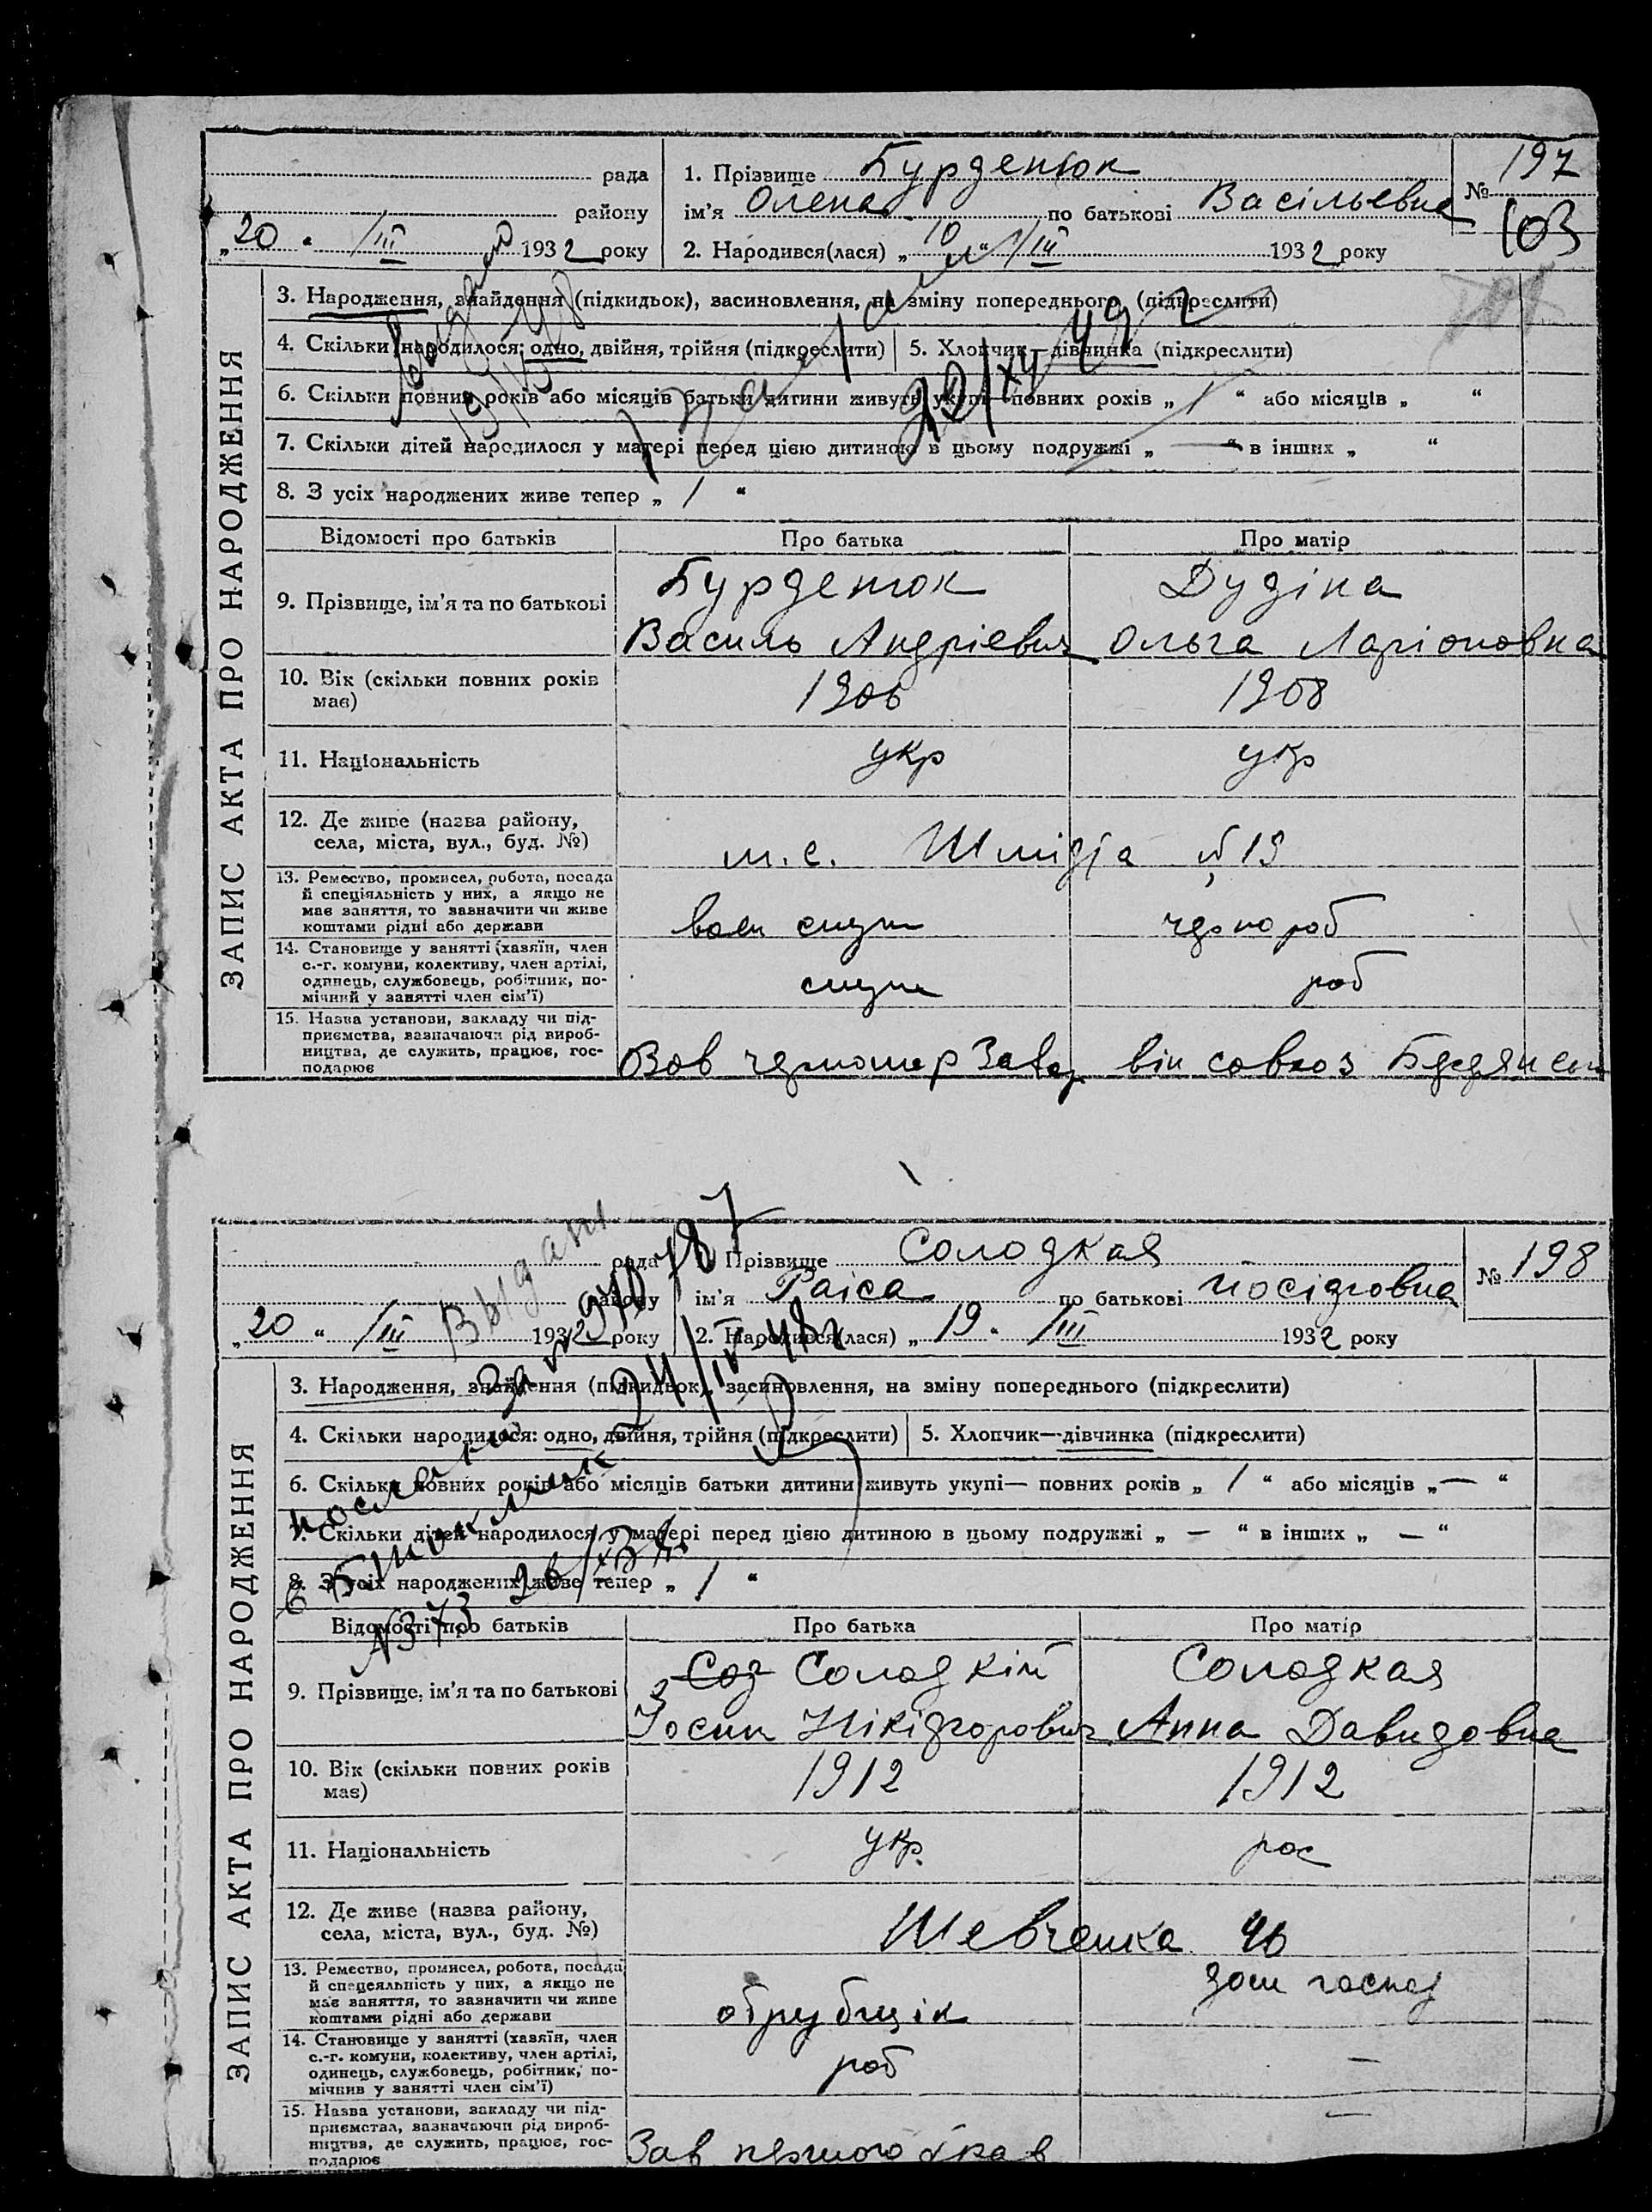 ЗАПИС АКТА ПРО НАРОДЖЕННЯ
рада
району
„20“ /III 1932 року
1. Прізвище Бурденюк
ім'я Олена по батькові Васільевна
2. Народився(лася) „10“ /III 1932 року
№ 197
103
3. Народження, знайдення (підкидьок), засиновлення, на зміну попереднього (підкреслити)
4. Скільки народилося: одно, двійня, трійня (підкреслити) 5. Хлопчик—дівчинка (підкреслити)
6. Скільки повних років або місяців батьки дитини живуть укупі—повних рохів „ / “ або місяців „ “
7. Скільки дітей народилося у матері перед цією дитиною в цьому подружжі „ — “ в інших „ “
8. З усіх народжених живе тепер „ 1 “
Відомості про батьків Про батька Про матір
9. Прізвище, ім'я та по батькові
Бурденюк Дудіна
Василь Андріевич Ольга Ларіоновна
10. Вік (скільки повних років має) 1906 1908
11. Національність укр укр
12. Де живе (назва району, села, міста, вул., буд. №)
Шмідта №19
13. Ремество, промисел, робота, посада
й спеціяльність у них, а якщо не
має заняття, то зазначити чи живе
коштами рідні або держави
чорнороб
14. Становище у занятті (хазяїн, член
с.-г. комуни, колективу, член артілі,
одинець, службовець, робітник, по-
мічний у занятті член сім'ї)
роб
15. Назва установи, закладу чи під-
приємства, зазначаючи рід вироб-
ництва, де служить, працює, гос-
подарює
совхоз
ЗАПИС АКТА ПРО НАРОДЖЕННЯ
рада
району
„20“ /III 1932 року
Прізвище Солодкая
ім'я Раіса по батькові
2. Народився(лася) „19“ /III 1932 року
№ 198
Выдано
24/IV 48г
3. Народження, знайдення (підкидьок), засиновлення, на зміну попереднього (підкреслити)
4. Скільки народилося: одно, двійня, трійня (підкреслити) 5. Хлопчик—дівчинка (підкреслити)
6. Скільки повних років або місяців батьки дитини живуть укупі— повних років „ 1 “ або місяців „ — “
7. Скільки дітей народилося у матері перед цією дитиною в цьому подружжі „ — “ в інших „ — “
8. З усіх народжених живе тепер „ 1 “
N373
Відомості про батьків Про батька Про матір
9. Прізвище, ім'я та по батькові
Солодкій Солодкая
Анна Давидовна
10. Вік (скільки повних років має) 1912 1912
11. Національність укр. рос
12. Де живе (назва району, села, міста, вул., буд. №)
Шевченка 46
13. Ремество, промисел, робота, посада
й спецеяльність у них, а якщо не
має заняття, то зазначити чи живе
коштами рідні або держави
обрубщік дом господ
14. Становище у занятті (хазяїн, член
с.-г. комуни, колективу, член артілі,
одинець, службовець, робітник, по-
мічнив у занятті член сім'ї)
роб —
15. Назва установи, закладу чи під-
приємства, зазначаючи рід вироб-
ництва, де служить, працює, гос-
подарює
Зав —